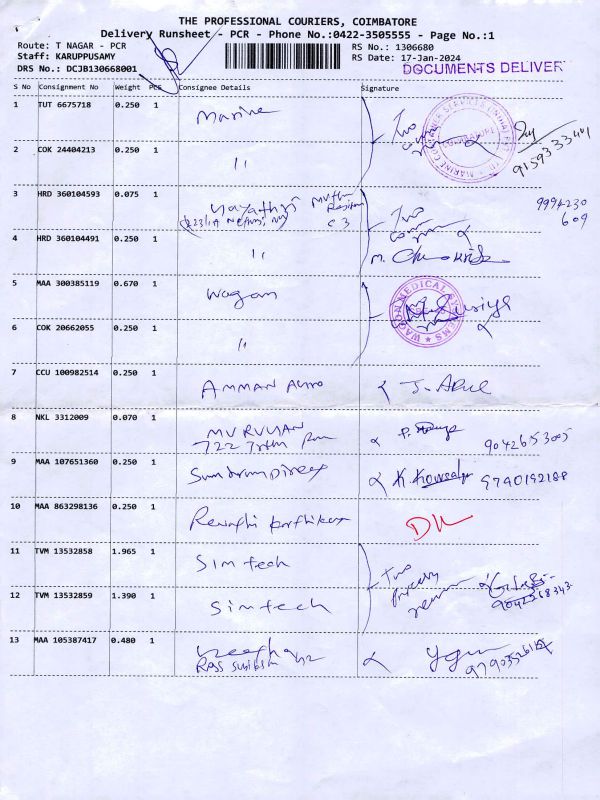 THE PROFESSIONAL COURIERS, COIMBATORE
Delivery Runsheet - PCR - Phone No.:0422-3505555 - Page No.:1
Route: T NAGAR - PCR
RS No.: 1306680
Staff: KARUPPUSAMY
RS Date: 17-Jan-2024
DRS No.: DCJB130668001
DOCUMENTS DELIVER
S No Consignment No Weight PCS Consignee Details Signature
1 TUT 6675718 0.250 1 Marine Two
9159333401
2 COK 24404213 0.250 1 "
3 HRD 360104593 0.075 1 Gayathri Two
C 3
9994230
609
4 HRD 360104491 0.250 1 "
5 MAA 300385119 0.670 1 Wagan
WAGON MEDICAL SYSTEMS
6 COK 20662055 0.250 1 "
7 CCU 100982514 0.250 1 AMMAN AUTO J. ARUL
8 NKL 3312009 0.070 1 MURUGAN
722
9042653005
9 MAA 107651360 0.250 1 K. Kowsalya 9790192188
10 MAA 863298136 0.250 1 Revathi Karthikeyan DL
11 TVM 13532858 1.965 1 Simtech Two
12 TVM 13532859 1.390 1 Simtech
9042568343
13 MAA 105387417 0.480 1